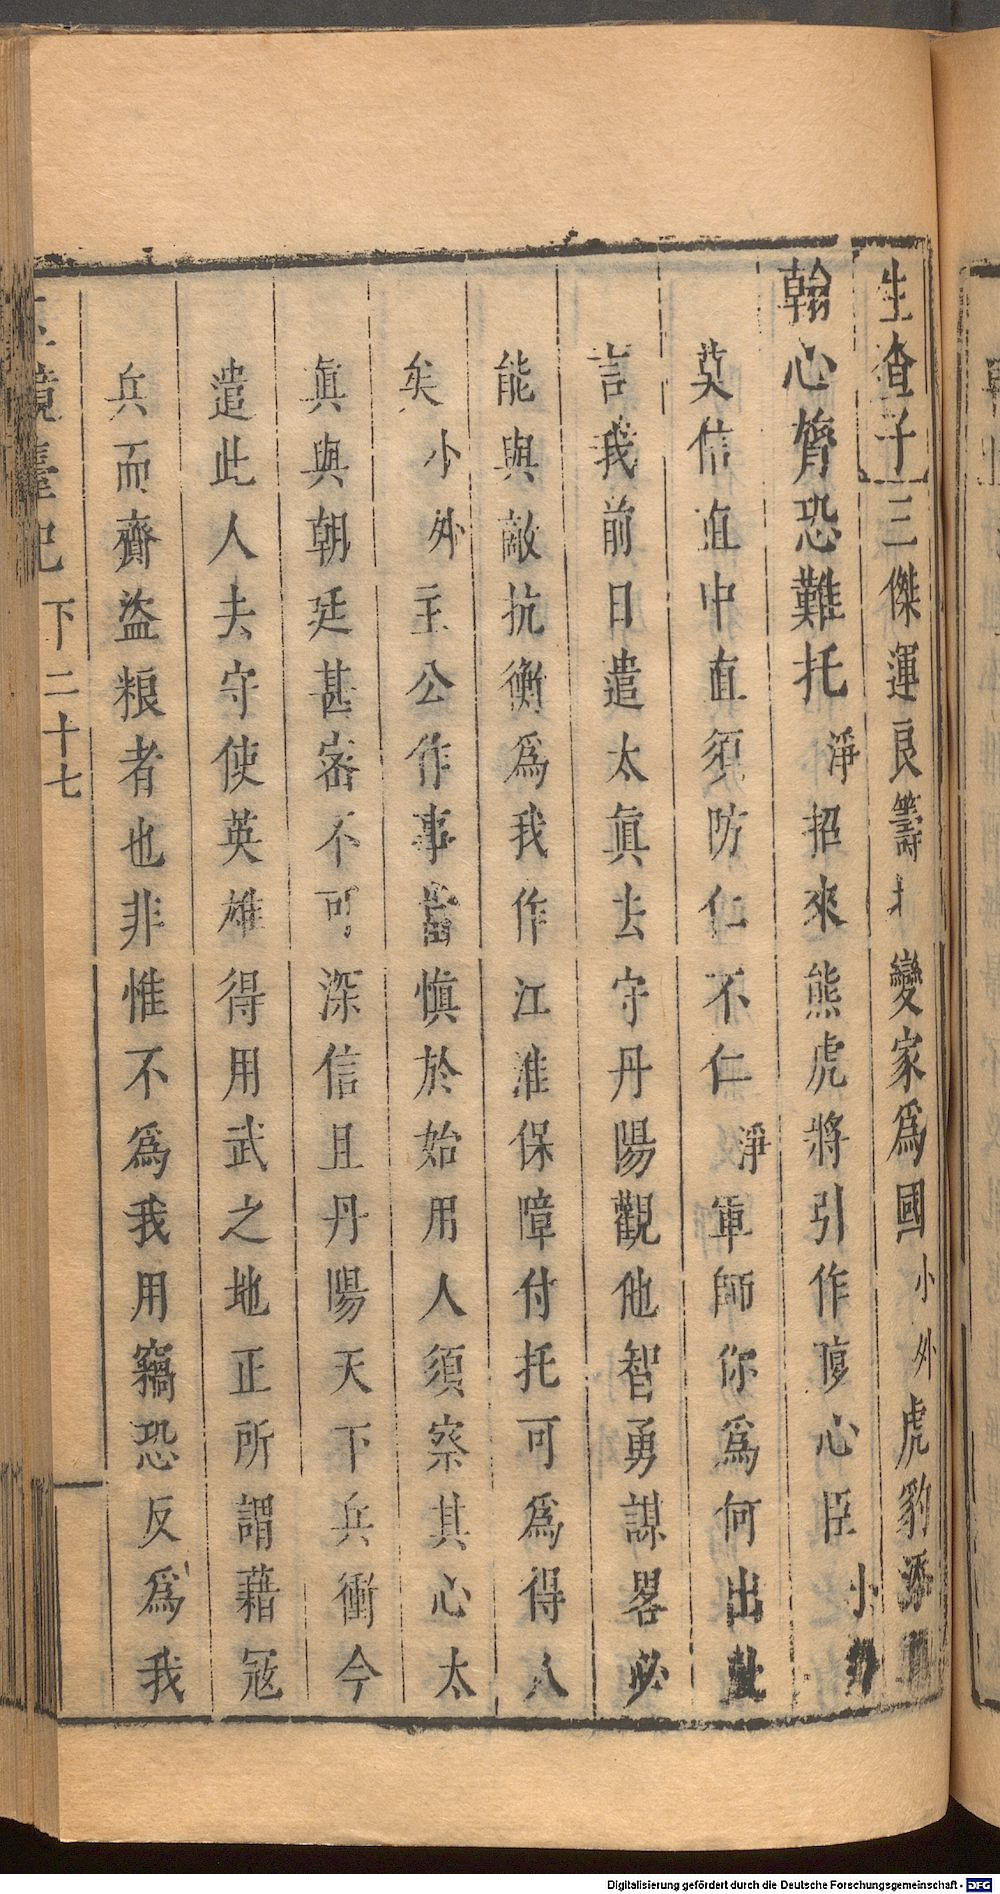 生查子三傑運良籌扌變家爲國小外虎豹添
翰心膂恐難托淨招來熊虎將引作腹心臣小外
莫信直中直須防仁不仁淨軍師你爲何出此
言我前日遣太眞去守丹陽觀他智勇謀畧必
能與敵抗衡爲我作江淮保障付托可爲得人
矣小外主公作事當慎於始用人須察其心太
眞與朝廷甚密不可深信且丹陽天下兵衝今
遣此人去守使英雄得用武之地正所謂藉寇
兵而齎盜粮者也非惟不爲我用竊恐反爲我
玉鏡臺記 下 二十七
Digitalisierung gefördert durch die Deutsche Forschungsgemeinschaft - DFG